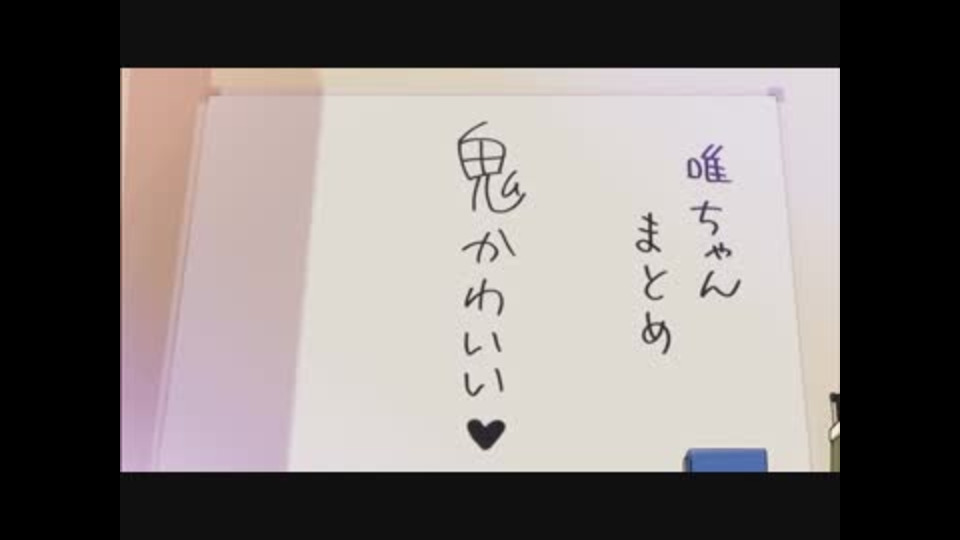 唯ちゃん
まとめ
鬼かわいい♥